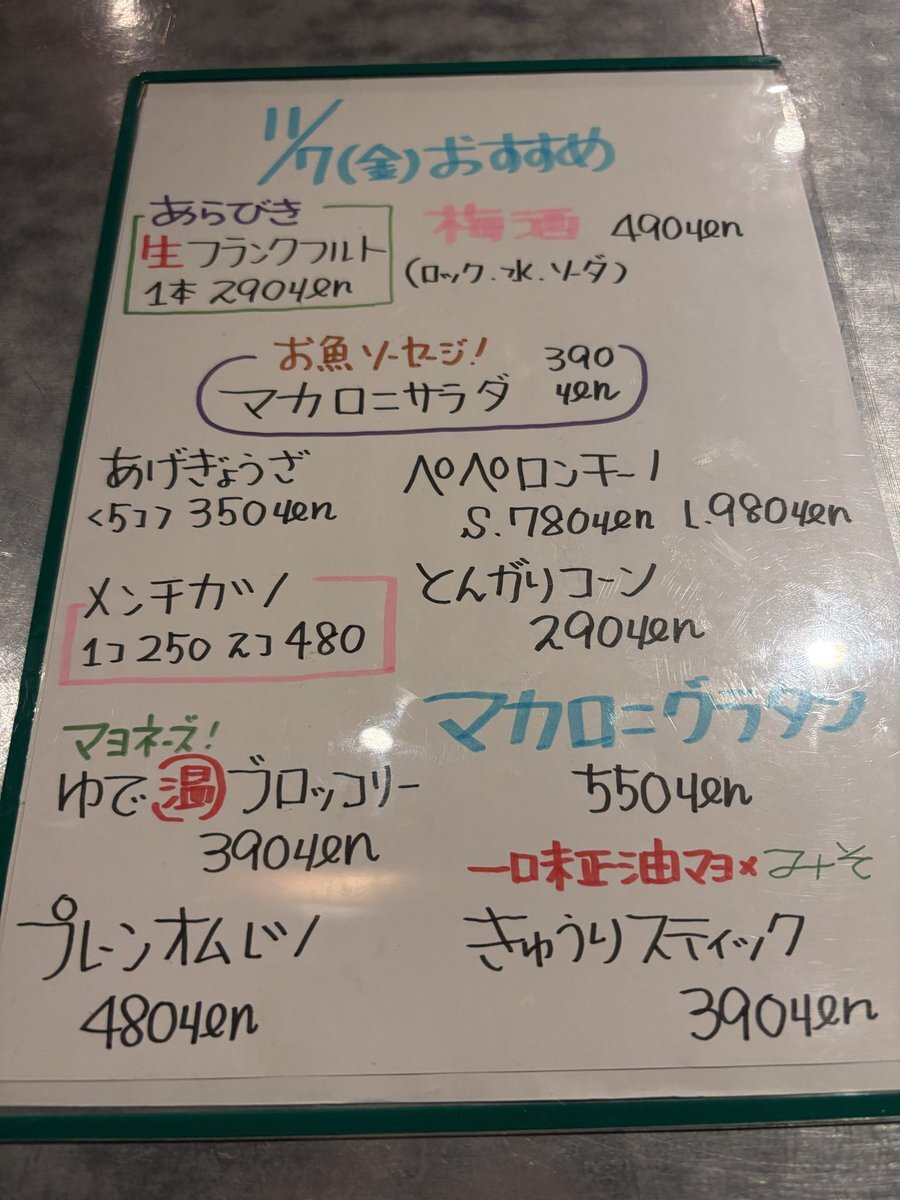 11/7(金)おすすめ
あらびき
生フランクフルト
1本 290yen
梅酒 490yen
(ロック.水.ソーダ)
お魚ソーセージ! 390
マカロニサラダ yen
あげぎょうざ
<5コ> 350yen
ペペロンチーノ
S.780yen L.980yen
メンチカツ
1コ250 2コ480
とんがりコーン
290yen
マヨネーズ!
ゆで温ブロッコリー
390yen
マカロニグラタン
550yen
プレーンオムレツ
480yen
一味正油マヨ×みそ
きゅうりスティック
390yen